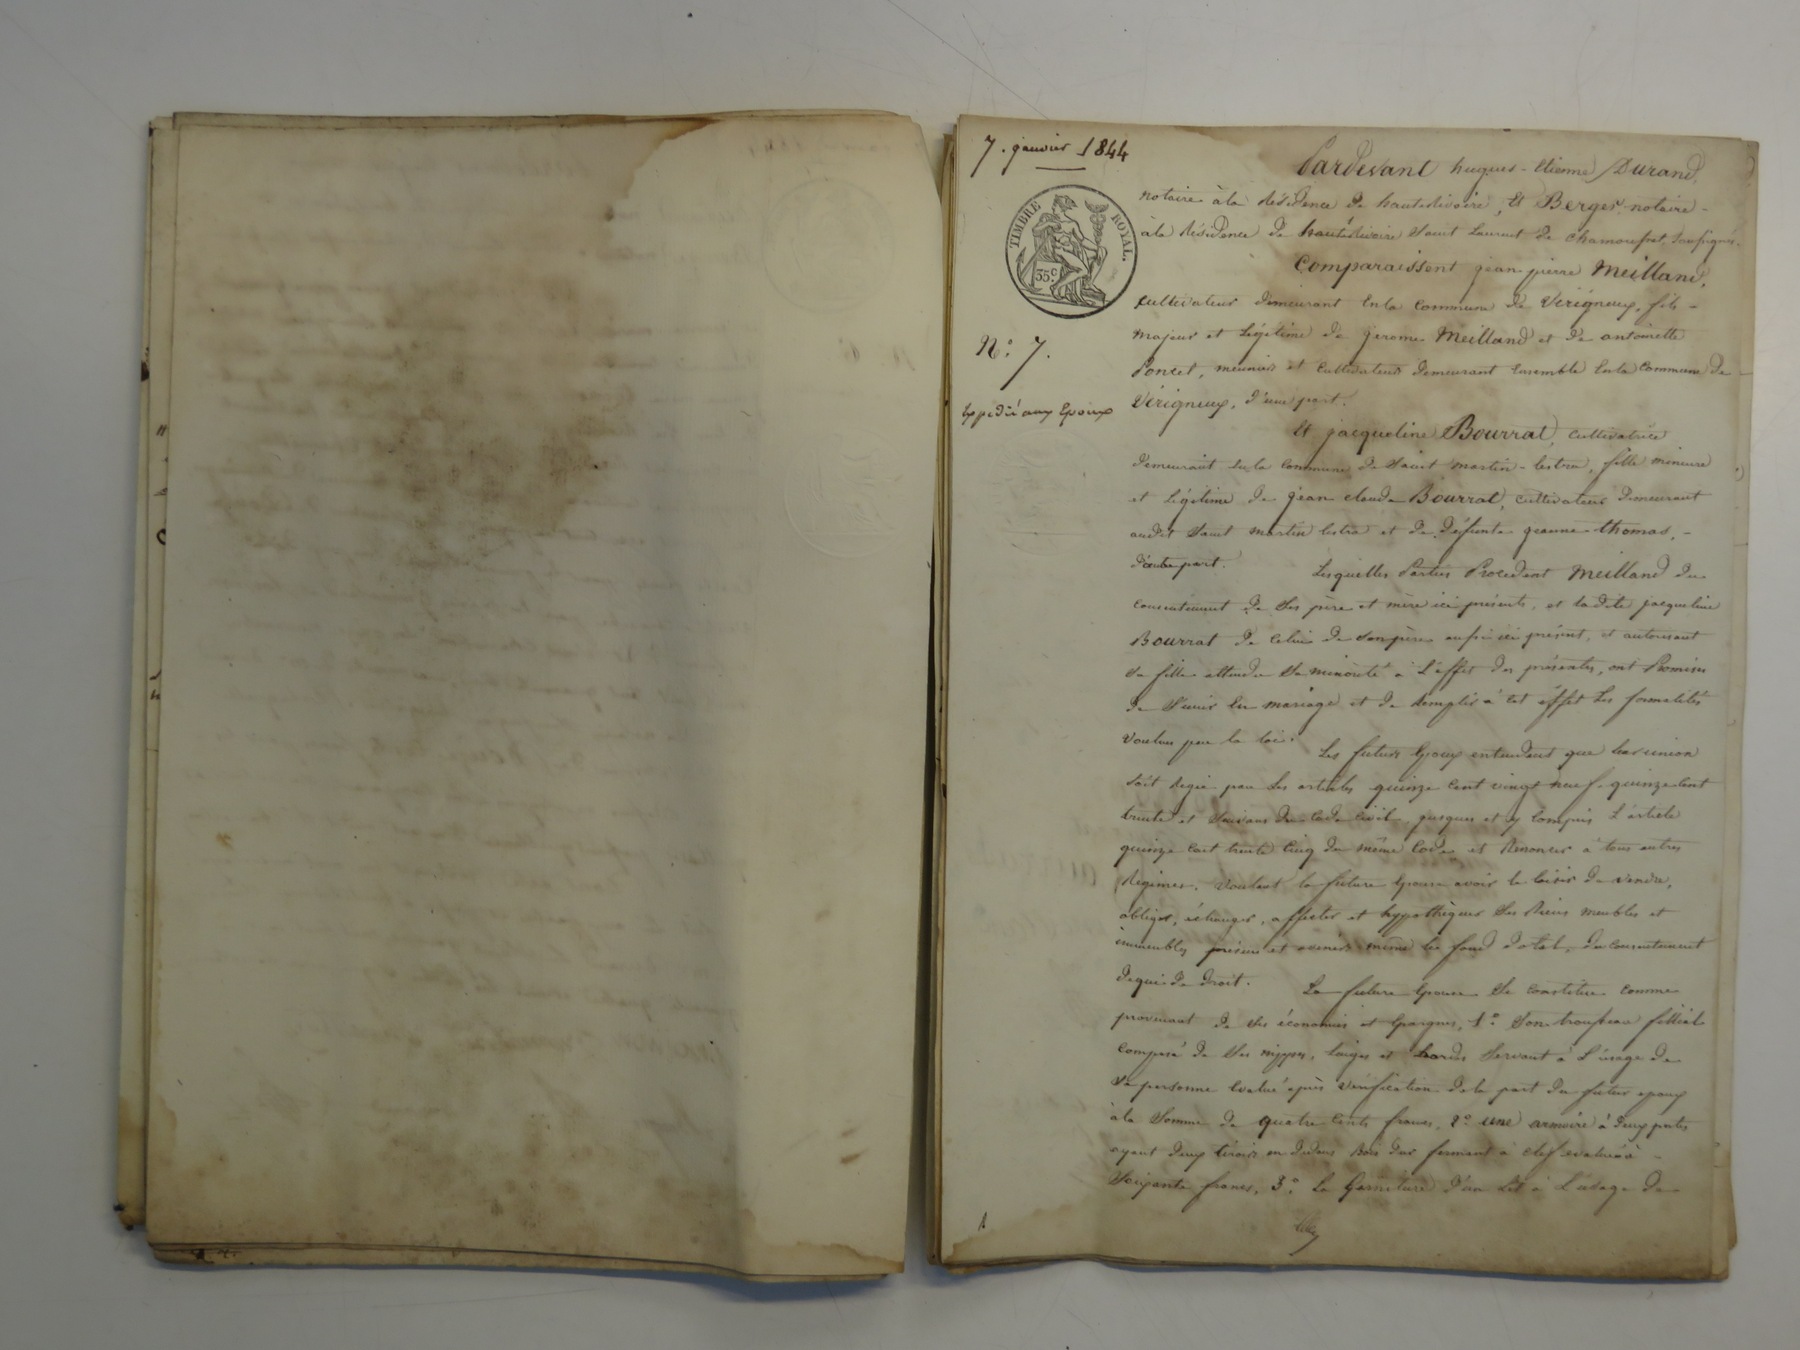 7. janvier 1844
TIMBRE ROYAL.
35 c
N.° 7.
Expédié aux Epoux
Pardevant hugues-Etienne Durand,
notaire à la résidence de hauterivoire, Et Berger notaire -
à la résidence de hauterivoire Saint Laurent de Chamousset, soussignés.
Comparaissent jean pierre Meilland,
Cultivateur demeurant En la Commune de Vérigneux, fils -
majeur et Légitime de jerome Meilland et de antoinette
Poncet, meunier et Cultivateurs demeurant Ensemble En la Commune de -
Vérigneux, d'une part.
Et jacqueline Bourrat, Cultivatrice
demeurant En la Commune de Saint martin-lestra, fille mineure
et Légitime de jean claude Bourrat, Cultivateur demeurant
audit Saint martin lestra et de défunte jeanne thomas, -
d'autre part.
Lesquelles Parties Procedant Meilland du
Consentement de Ses père et mère ici présents, et ladite jacqueline
Bourrat de Celui de Son père aussi ici présent, et autorisant
Sa fille attendu Sa minorité à L'effet des présentes, ont Promis
de S'unir En mariage et de Remplir à cet éffet Les formalités
Voulues par la loi.
Les futurs Epoux entendent que leur union
Soit Régie par Les articles quinze Cent vingt neuf, quinze Cent
trente et Suivans du Code Civil, jusques et y Compris L'article
quinze Cent trente Cinq du même Code et Renoncer à tous autres
Régimes. Voulant la future Epouse avoir le loisir de vendre,
obliger, échanger, affecter et hypothèquer Ses Biens meubles et
immeubles présens et avenirs même le fond dotal, du Consentement
de qui de droit.
La future Epouse Se Constitue Comme
provenant de Ses économies et Epargnes, 1.° Son trousseau filléal
Composé de Ses nippes, linges et hardes Servant à L'usage de
Sa personne Evalué après Vérification de la part du futur epoux
à la Somme de quatre Cents francs, 2.° une armoire à deux portes
ayant deux tiroirs en dedans Bois dur fermant à clef evaluée à -
Soixante francs, 3.° La Garniture d'un Lit à L'usage de